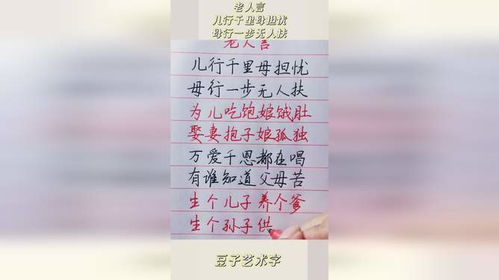 老人言
儿行千里母担忧
母行一步无人扶
老人言
儿行千里母担忧
母行一步无人扶
为儿吃饱娘饿肚
娶妻抱子娘孤独
万爱千恩都在唱
有谁知道父母苦
生个儿子养个爹
生个孙子供
豆子艺术字